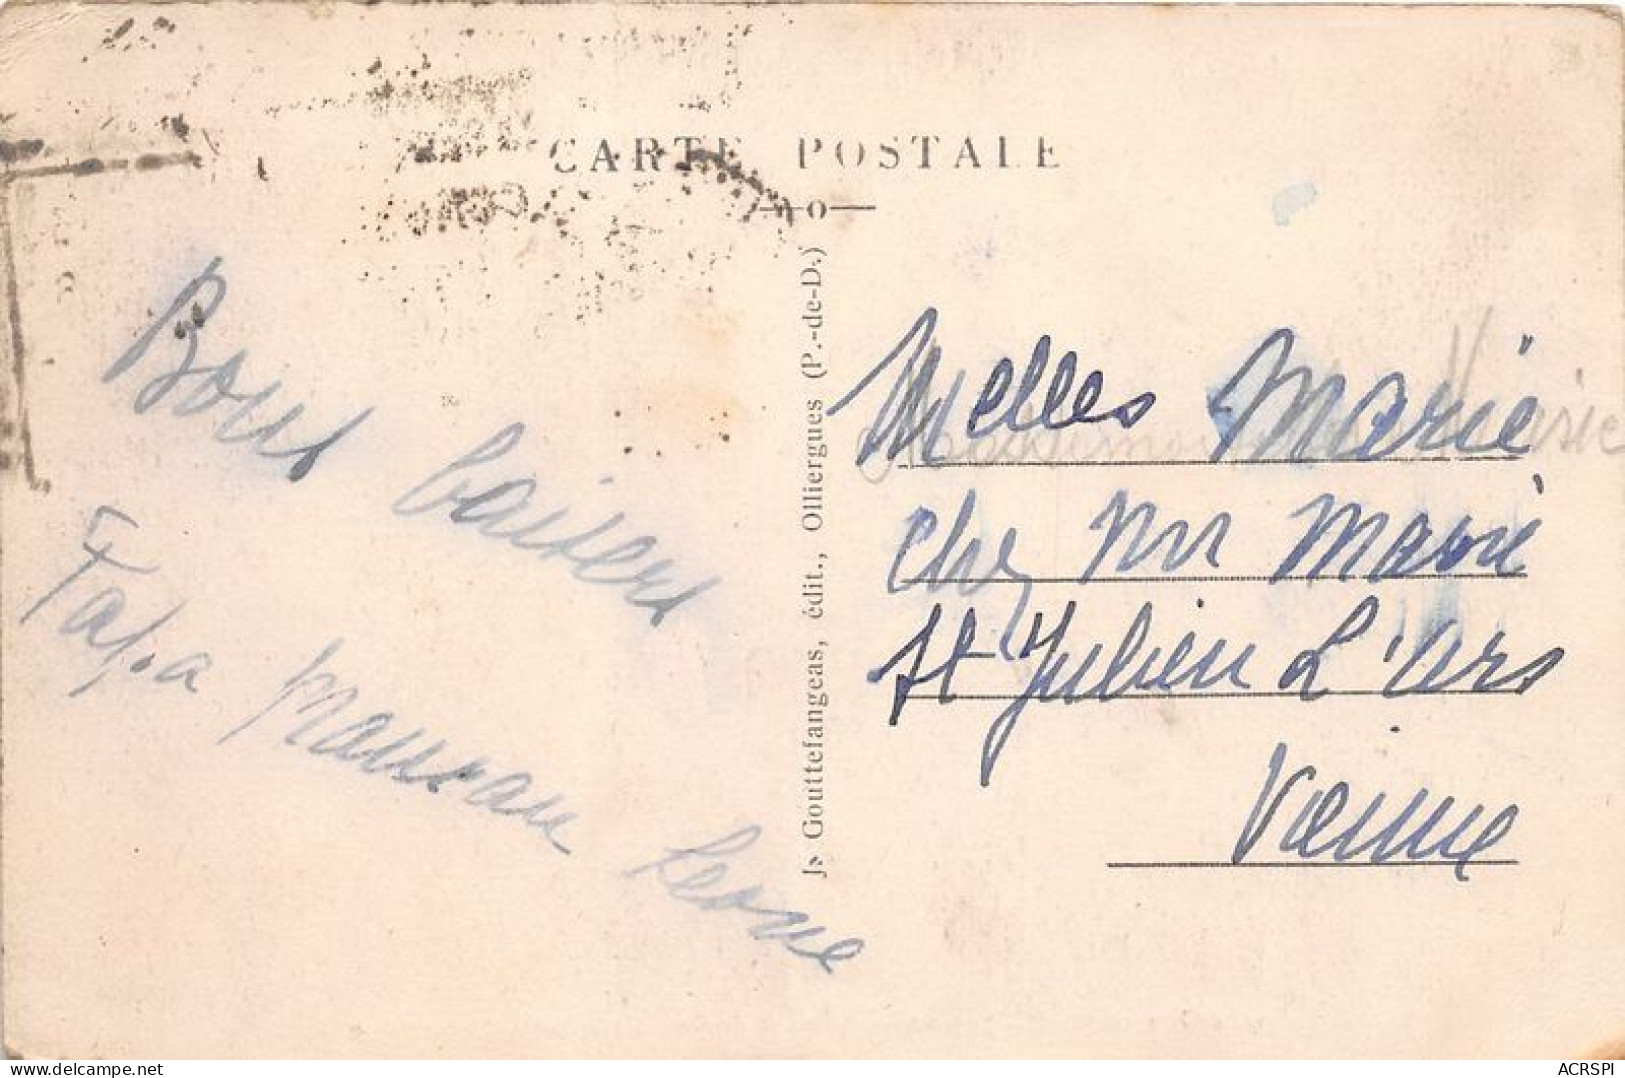 CARTE POSTALE
Bons baisers
Papa maman Leone
Js Gouttefangeas, édit., Olliergues (P.-de-D.)
Melles Marie
chez Mr Marie
St Julien L'Ars
Vienne
delcampe.net
ACRSPI